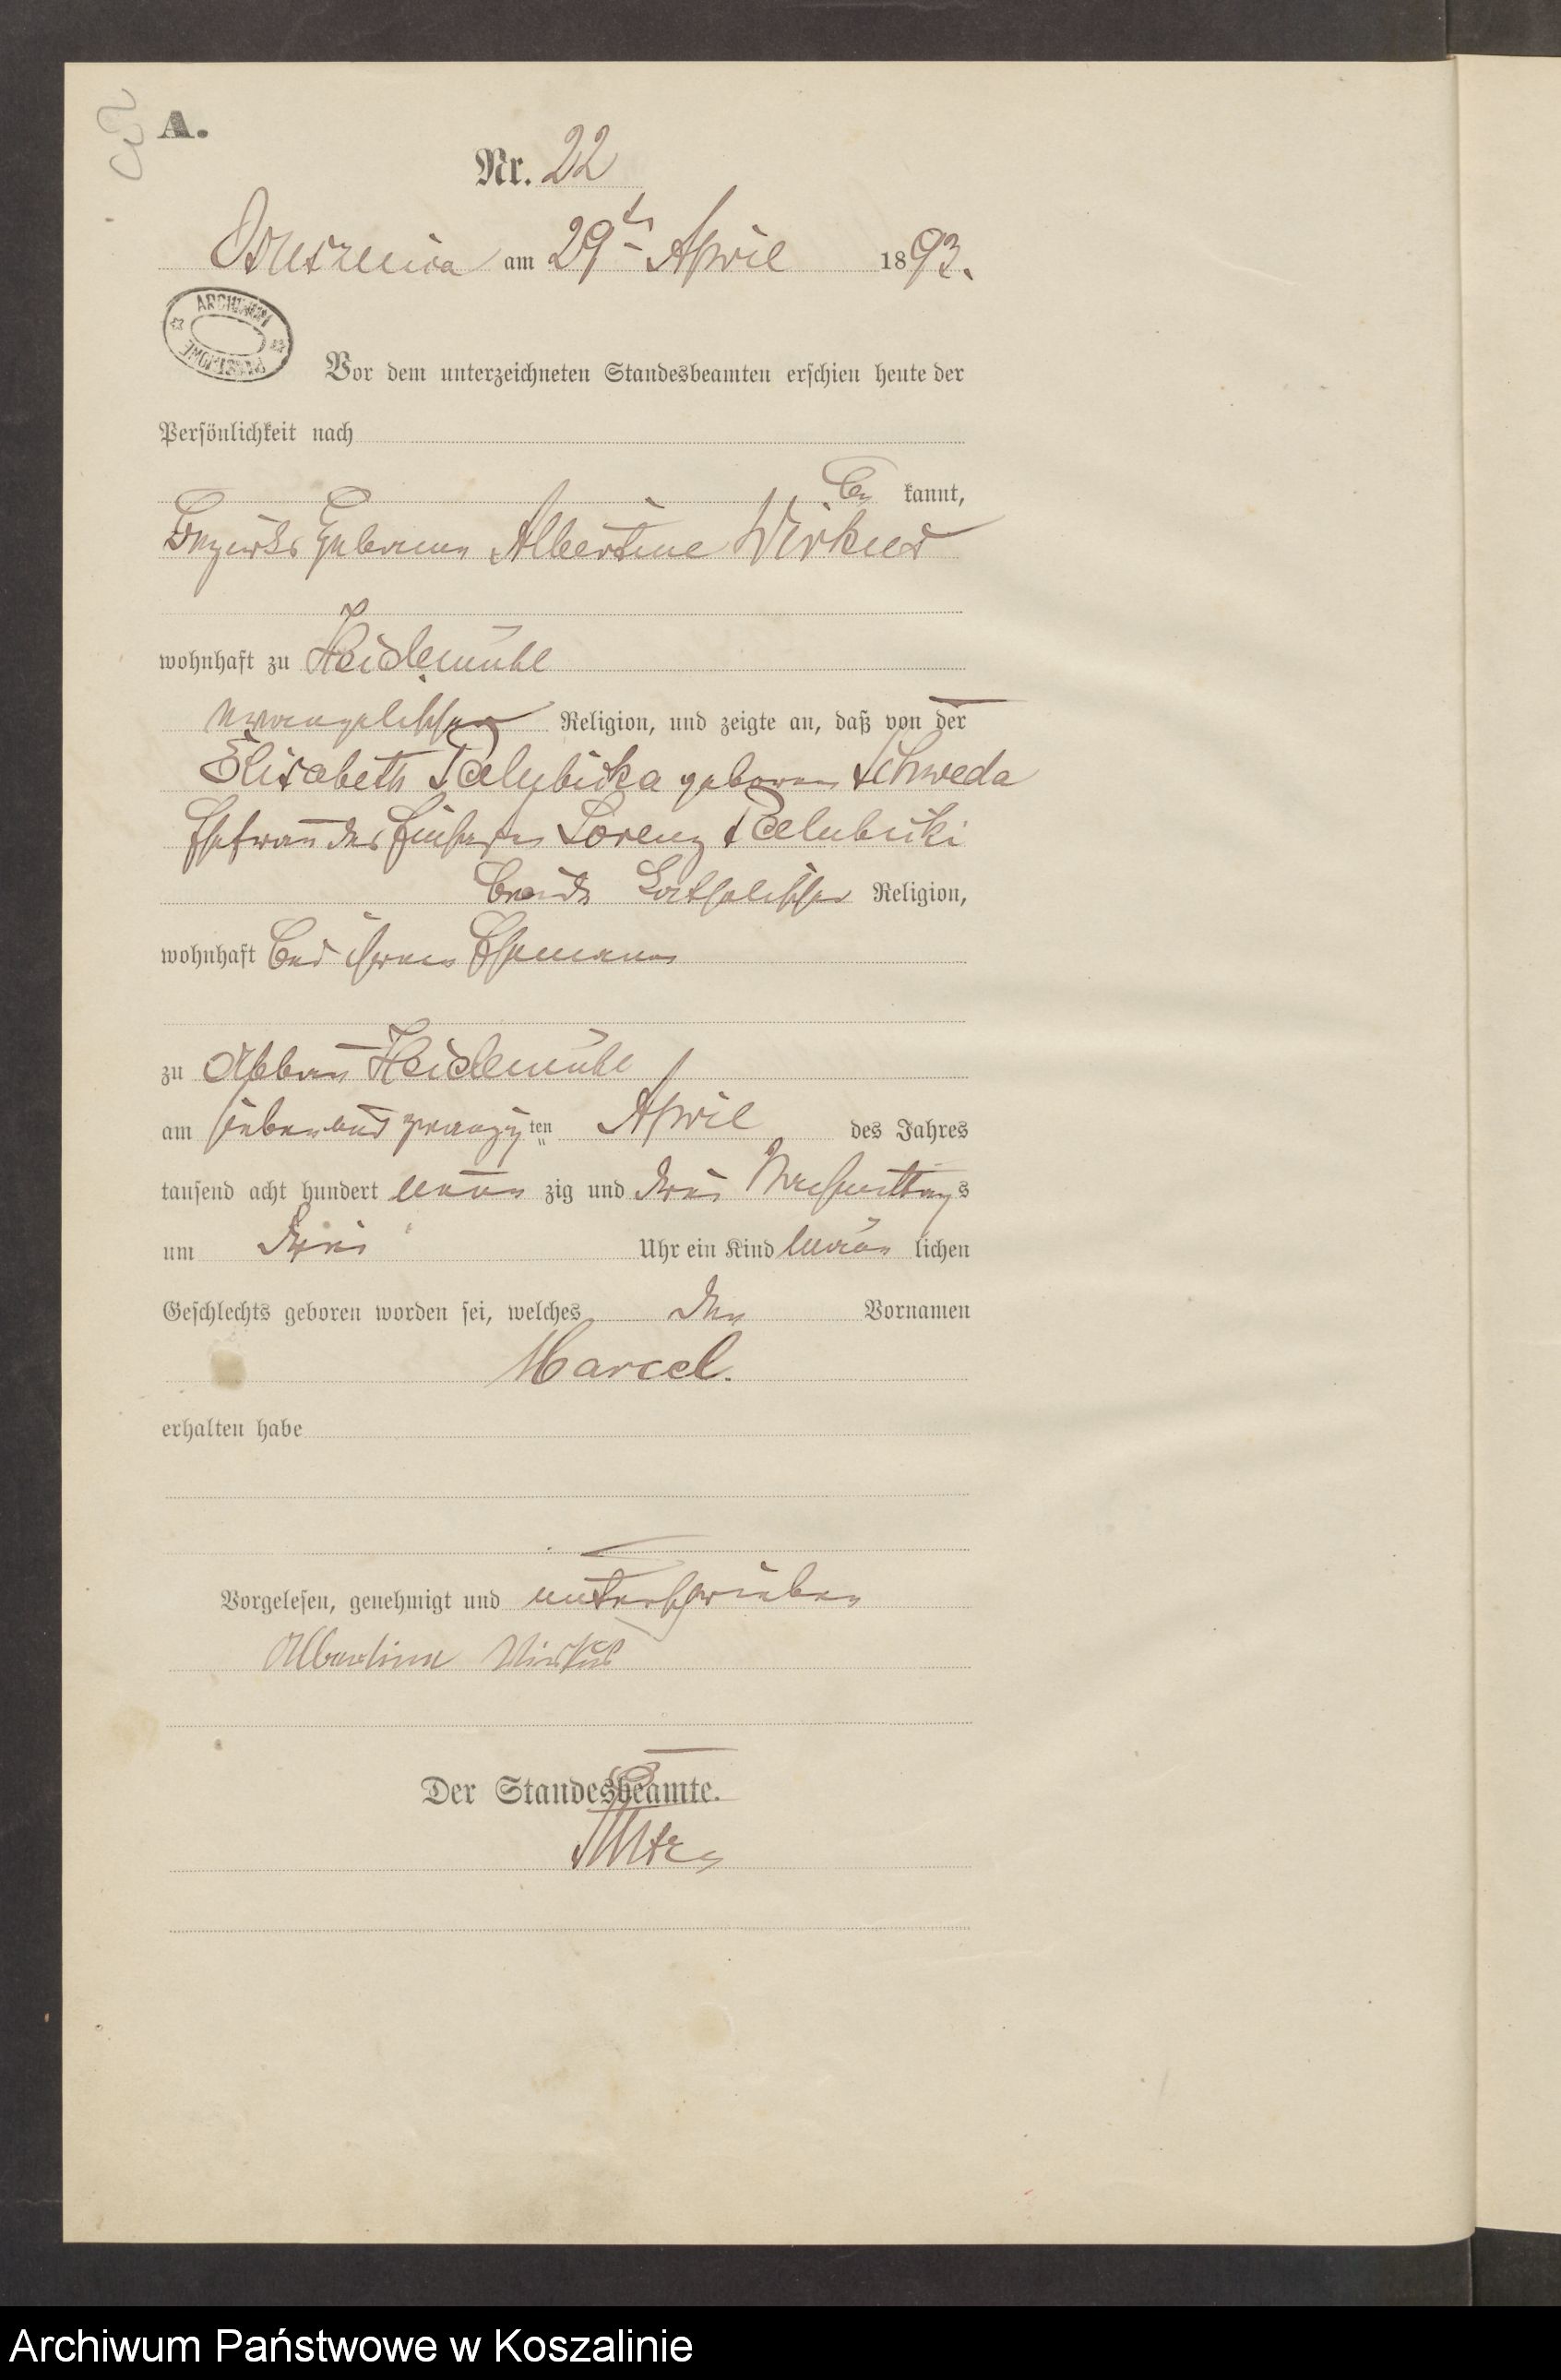 A.
Nr. 22
Osusznica am 29ten April 1893.
ARCHIWUM PAŃSTWOWE
Vor dem unterzeichneten Standesbeamten erschien heute der
Persönlichkeit nach
be kannt,
Bezirks Hebamme Albertine Wirkus
wohnhaft zu Heidemühl
evangelischer Religion, und zeigte an, daß von der
Elisabeth Palubicka geborene Schweda
Ehefrau des Käthners Lorenz Palubicki
beide katholischer Religion,
wohnhaft bei ihrem Ehemann
zu Abbau Heidemühl
am siebenundzwanzig ten April des Jahres
tausend acht hundert neun zig und drei Nachmittags
um drei Uhr ein Kind männ lichen
Geschlechts geboren worden sei, welches den Vornamen
Marcel.
erhalten habe
Vorgelesen, genehmigt und unterschrieben
Albertine Wirkus
Der Standesbeamte.
Archiwum Państwowe w Koszalinie